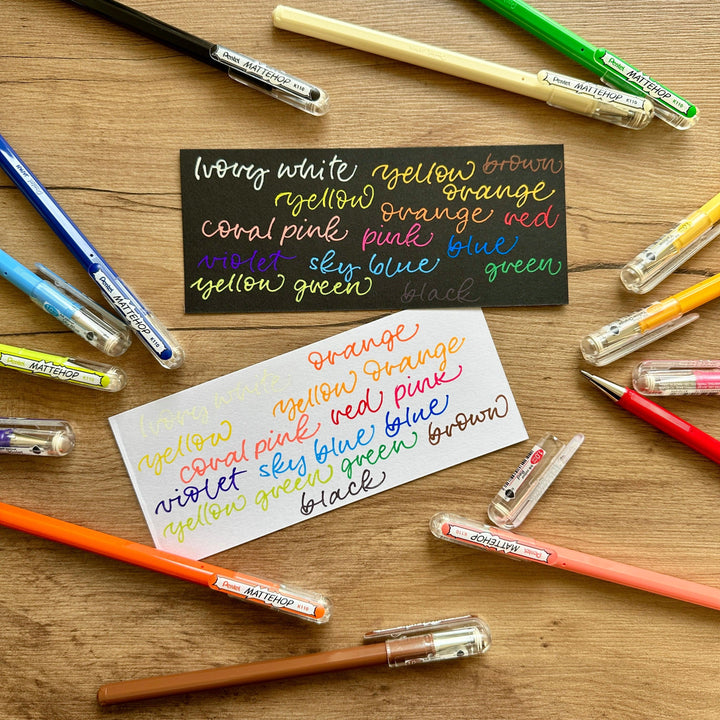 Pentel MATTEHOP K110
Pentel MATTEHOP K110
Pentel MATTEHOP K110
Ivory white yellow brown
yellow orange
coral pink orange red
violet sky blue pink blue
yellow green black green
MATTEHOP K110
Pentel MATTEHOP K110
orange
Ivory white yellow orange
yellow coral pink red pink
violet sky blue blue
yellow green green brown
black
Pentel MATTEHOP K110
Pentel MATTEHOP K110